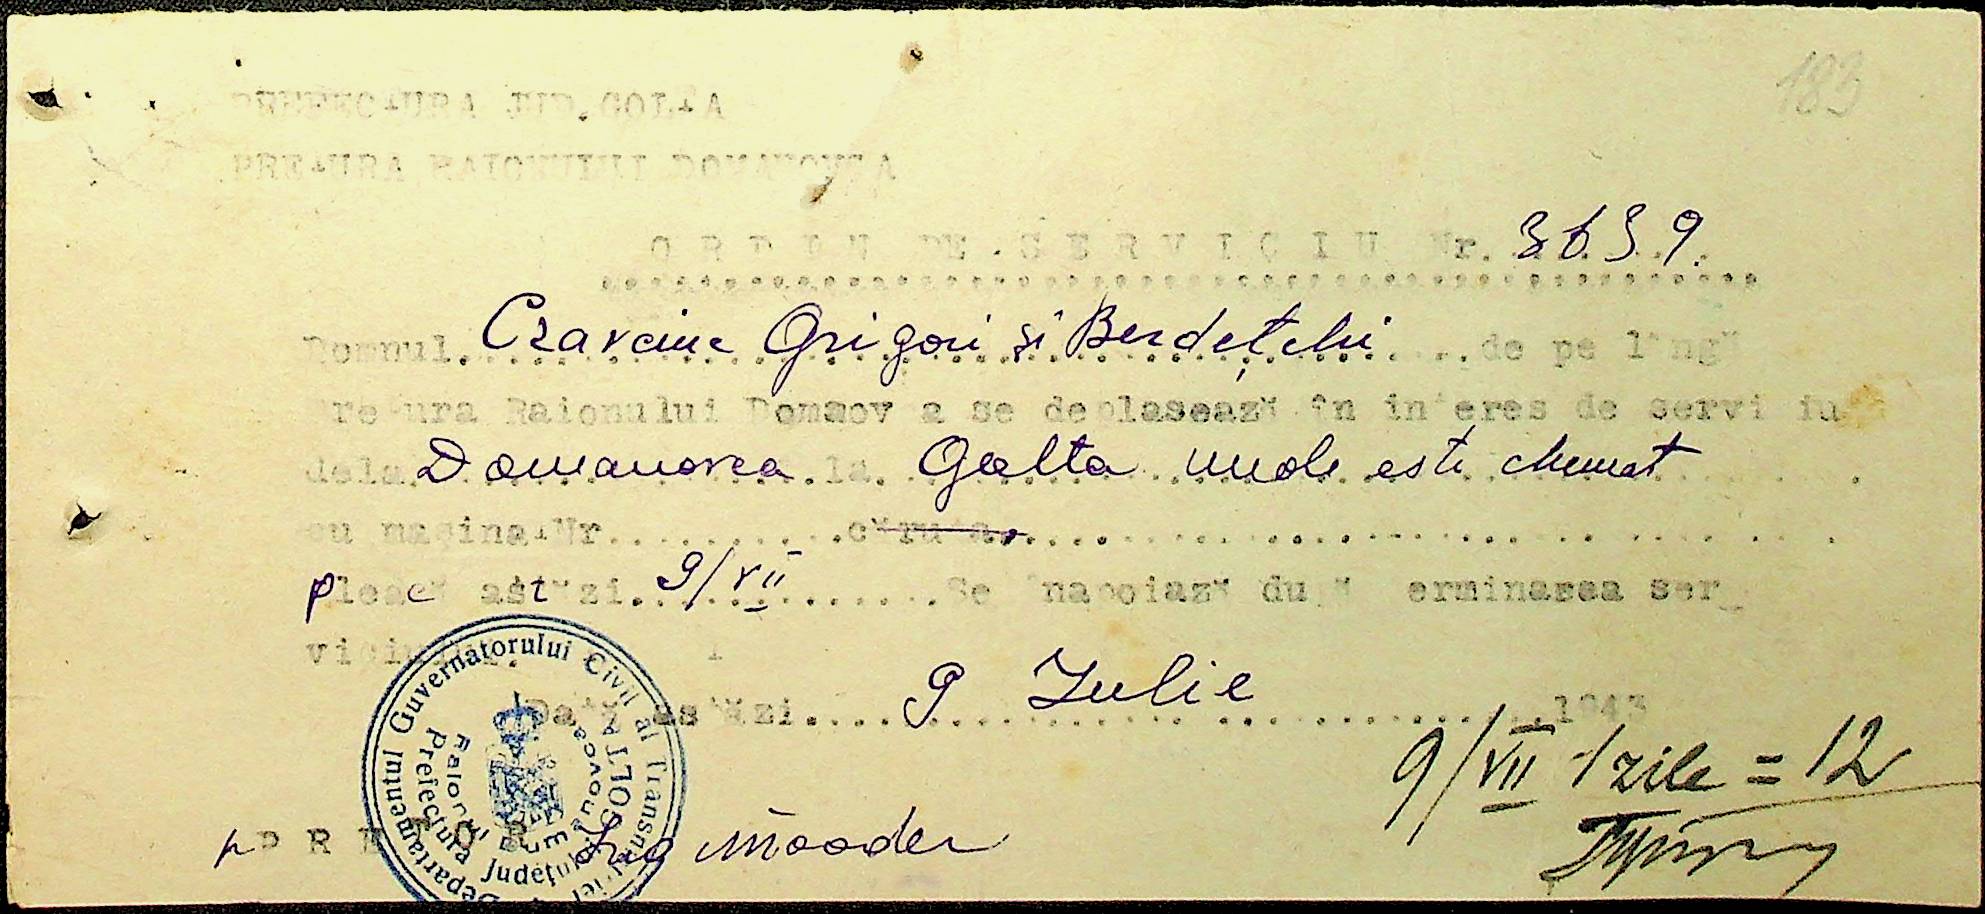 183
PREFECTURA JUD.GOLTA
PRETURA RAIONULUI DOMANOVCA
ORDIN DE SERVICIU Nr. 3639.
Domnul. Grigori și Berdețchi de pe lîngă
Pretura Raionului Domaovca se deplasează în interes de serviciu
dela Domanovca la Golta unde este chemat
cu mașina Nr..........căruța
pleacă astăzi 9/VII Se înapoiază după terminarea ser
viciului.
Dată astăzi 9 Iulie 1943
9/VII 1 zile = 12
p PRETOR Ing
Departamentul Guvernatorului Civil al Transnistriei
Prefectura Județului GOLTA
Raionul